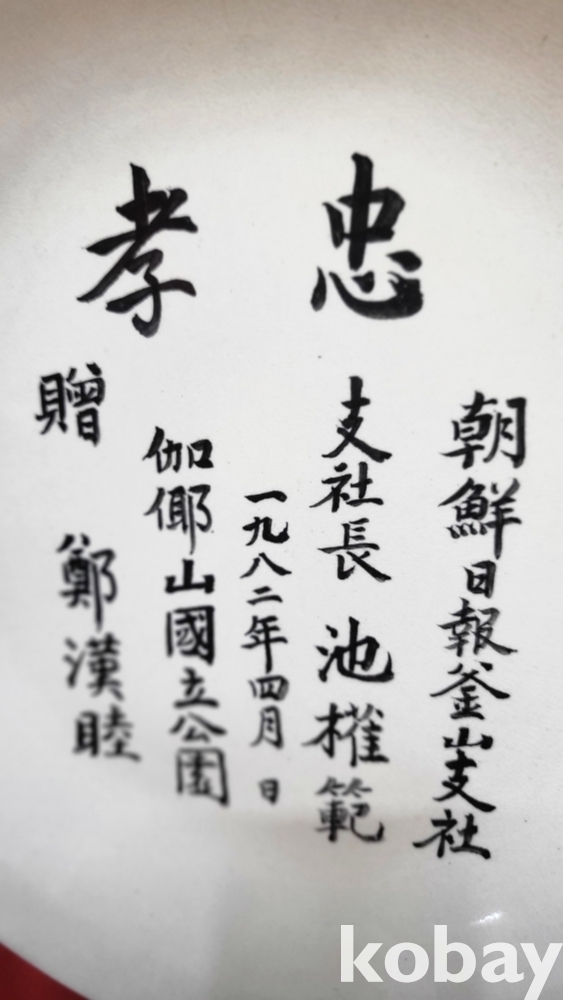 忠孝
朝鮮日報釜山支社
支社長 池權範
一九八二年四月 日
伽倻山國立公園
贈 鄭漢睦
kobay